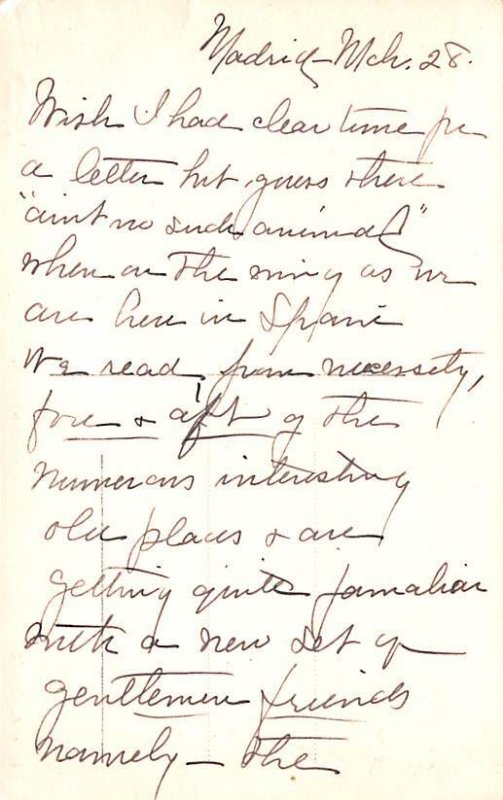 Madrid – Mch. 28.
Wish I had clear time for
a letter but guess there
"aint no such animal"
when on the wing as we
are here in Spain
We read, from necessity,
fore & aft of the
numerous interesting
old places & are
getting quite familiar
with a new set of
gentlemen friends
namely – the